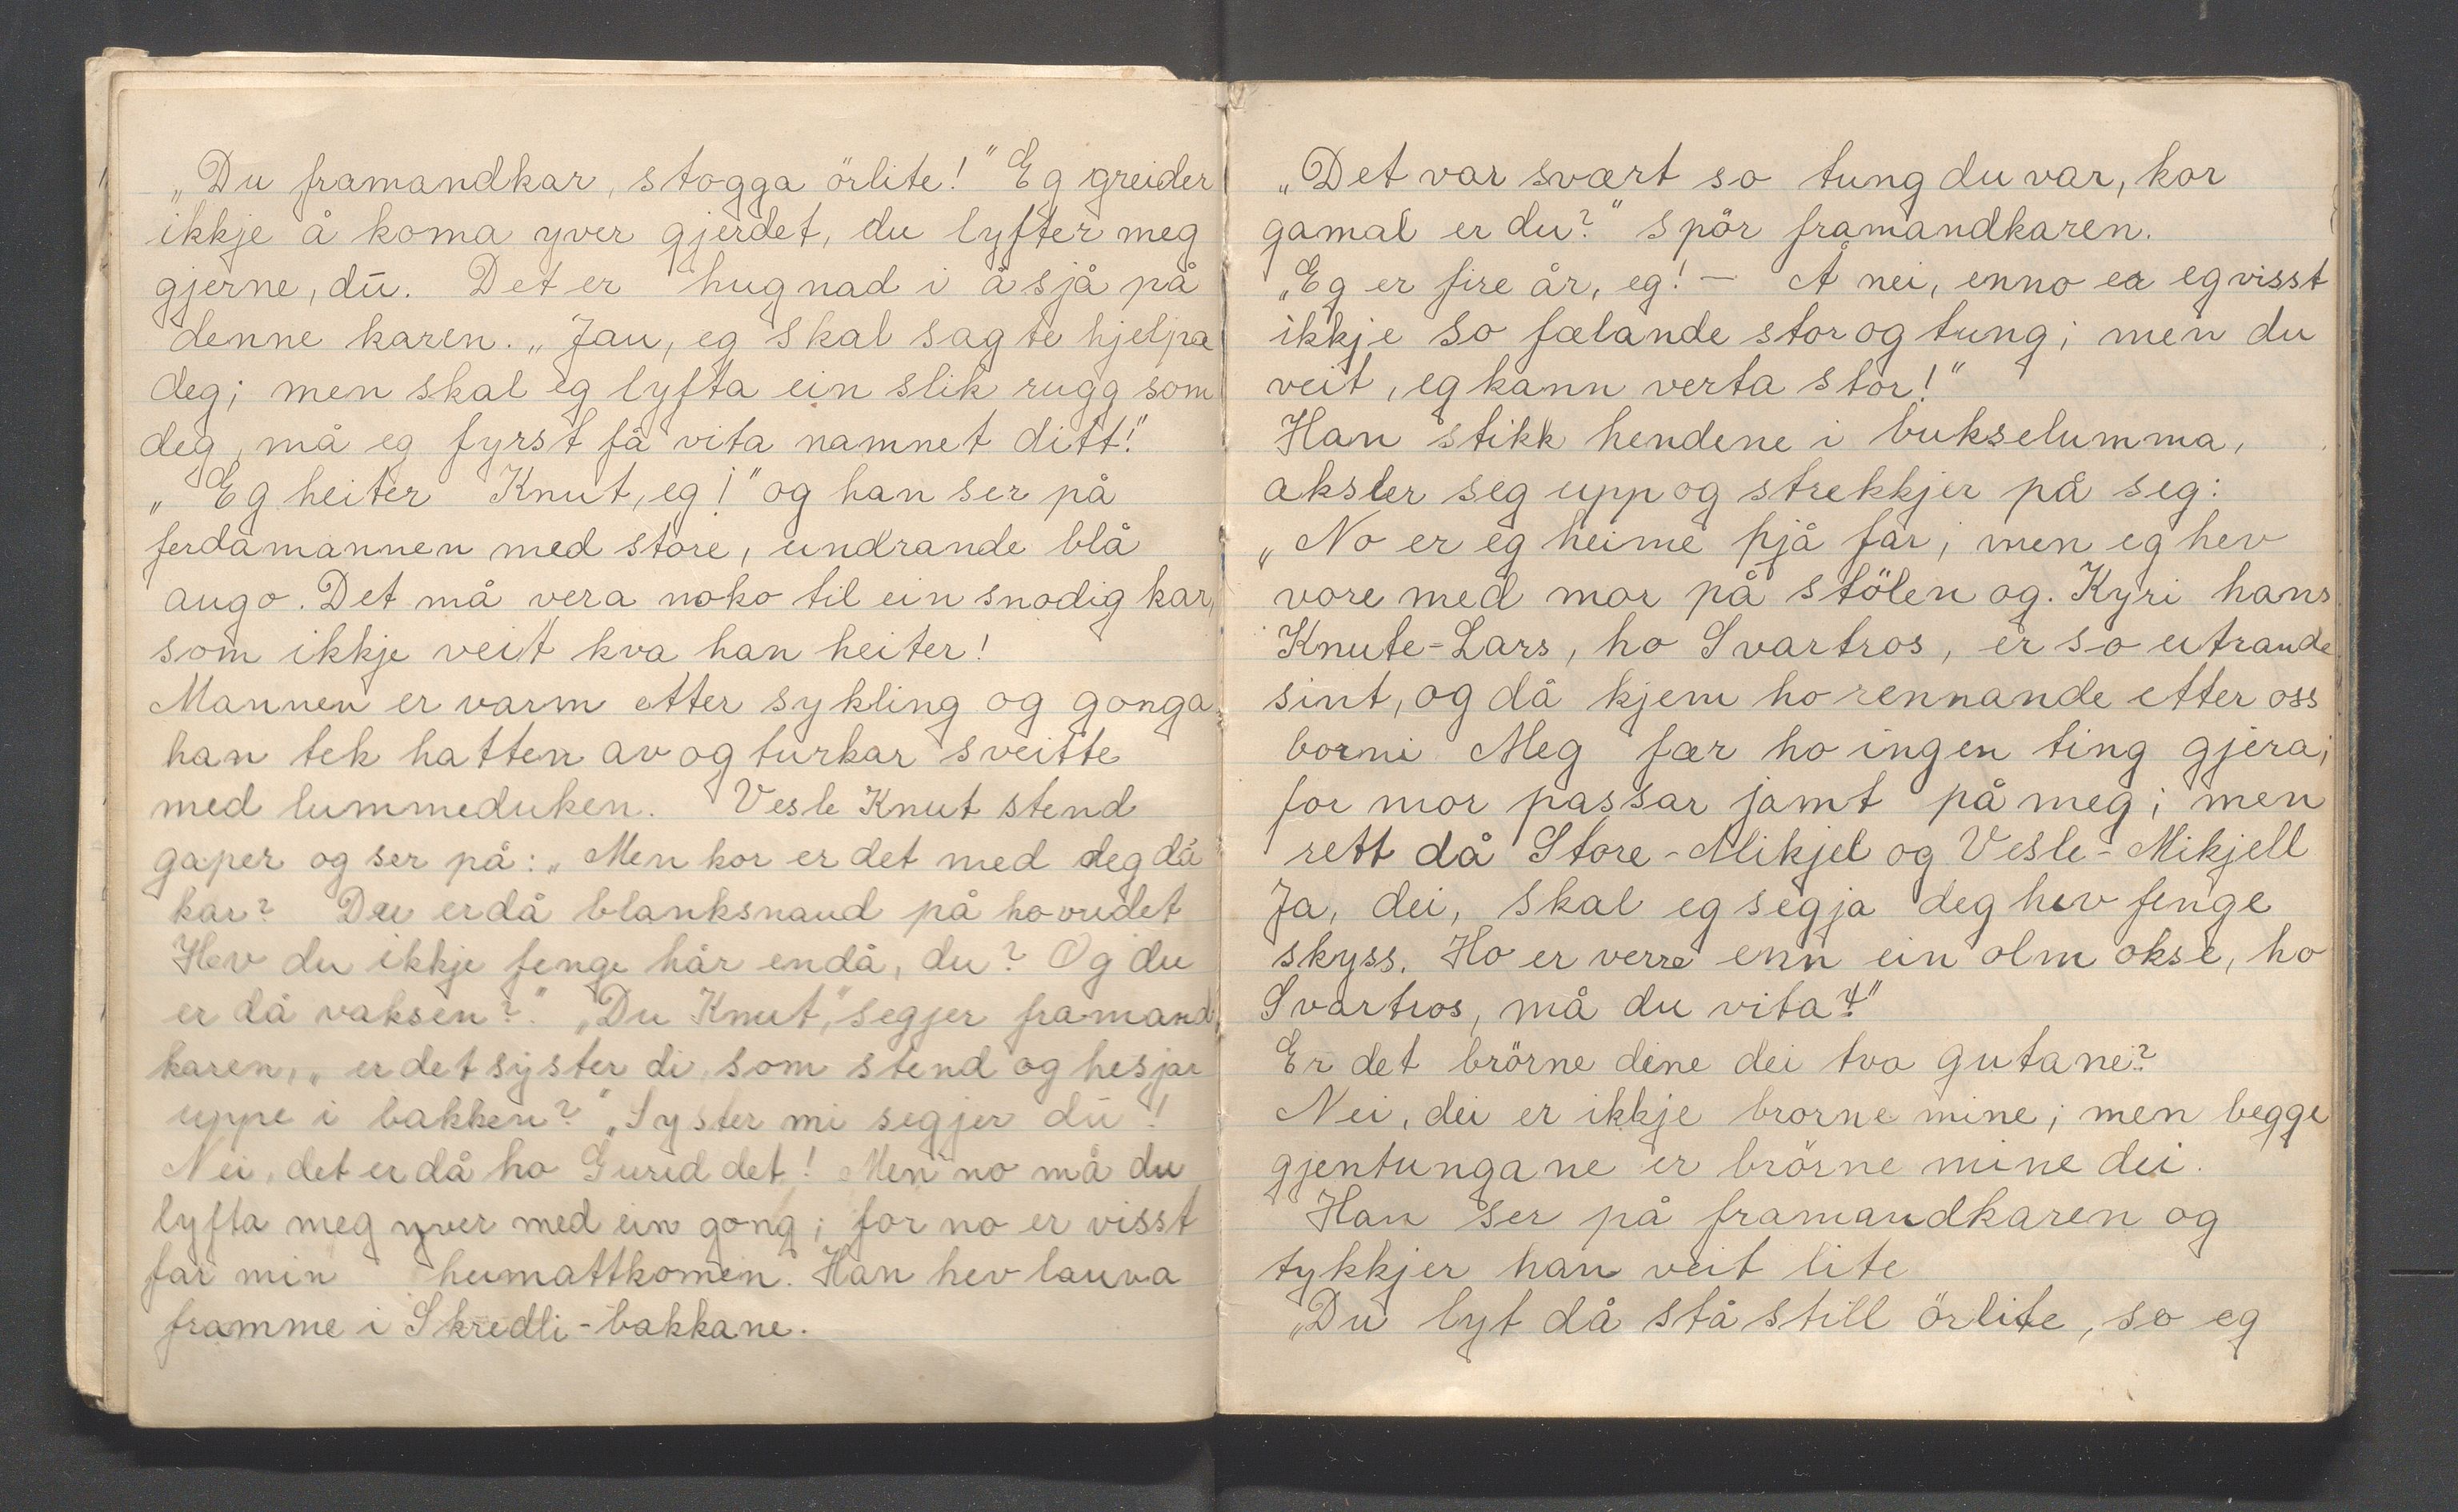 „Du framandkar, stogga örlite!" Eg greider
ikkje å koma yver gjerdet, du lyfter meg
gjerne, dū. Det er hugnad i å sjå på
denne karen. „Jau, eg skal sagte hjelpa
deg; men skal eg lyfta ein slik rugg som
deg, må eg fyrst få vita namnet ditt!"
„Eg heiter Knut, eg!" og han ser på
ferdamannen med store, undrande blå
augo. Det må vera noko til ein snodig kar,
som ikkje veit kva han heiter!
Mannen er varm etter sykling og gonga,
han tek hatten av og turkar sveitte
med lummeduken. Vesle Knut stend
gaper og ser på: „Men kor er det med deg då
kar? Du er då blanksnaud på hovudet
Hev du ikkje fenge hår endå, du? Og du
er då vaksen?" „Du Knut," segjer framand
karen, „er det syster di som stend og hesjar
uppe i bakken?" „Syster mi segjer dū!
Nei, det er då ho Gurid det! Men no må du
lyfta meg yver med ein gong; for no er visst
far min heimattkomen. Han hev lauva
framme i Skredli-bakkane.
„Det var svært so tung du var, kor
gamal er du?" spör framandkaren.
„Eg er fire år, eg! – Å nei, enno er eg visst
ikkje so fælande stor og tung; men du
veit, eg kann verta stor!"
Han stikk hendene i bukselumma,
aksler seg upp og strekkjer på seg:
„No er eg heime hjå far; men eg hev
vore med mor på stölen og. Kyri hans
Knute-Lars, ho Svartros, er so utrande
sint, og då kjem ho rennande etter oss
borni Meg fær ho ingen ting gjera;
for mor passar jamt på meg; men
rett då Store-Mikjel og Vesle-Mikjell
Ja, dei, skal eg segja deg hev fenge
skyss. Ho er verre enn ein olm okse, ho
Svartros, må du vita?"
Er det brörne dine dei tvo gutane?
Nei, dei er ikkje brorne mine; men begge
gjentungane er brörne mine dei.
Han ser på framandkaren og
tykkjer han veit lite
„Du lyt då stå still örlite, so eg